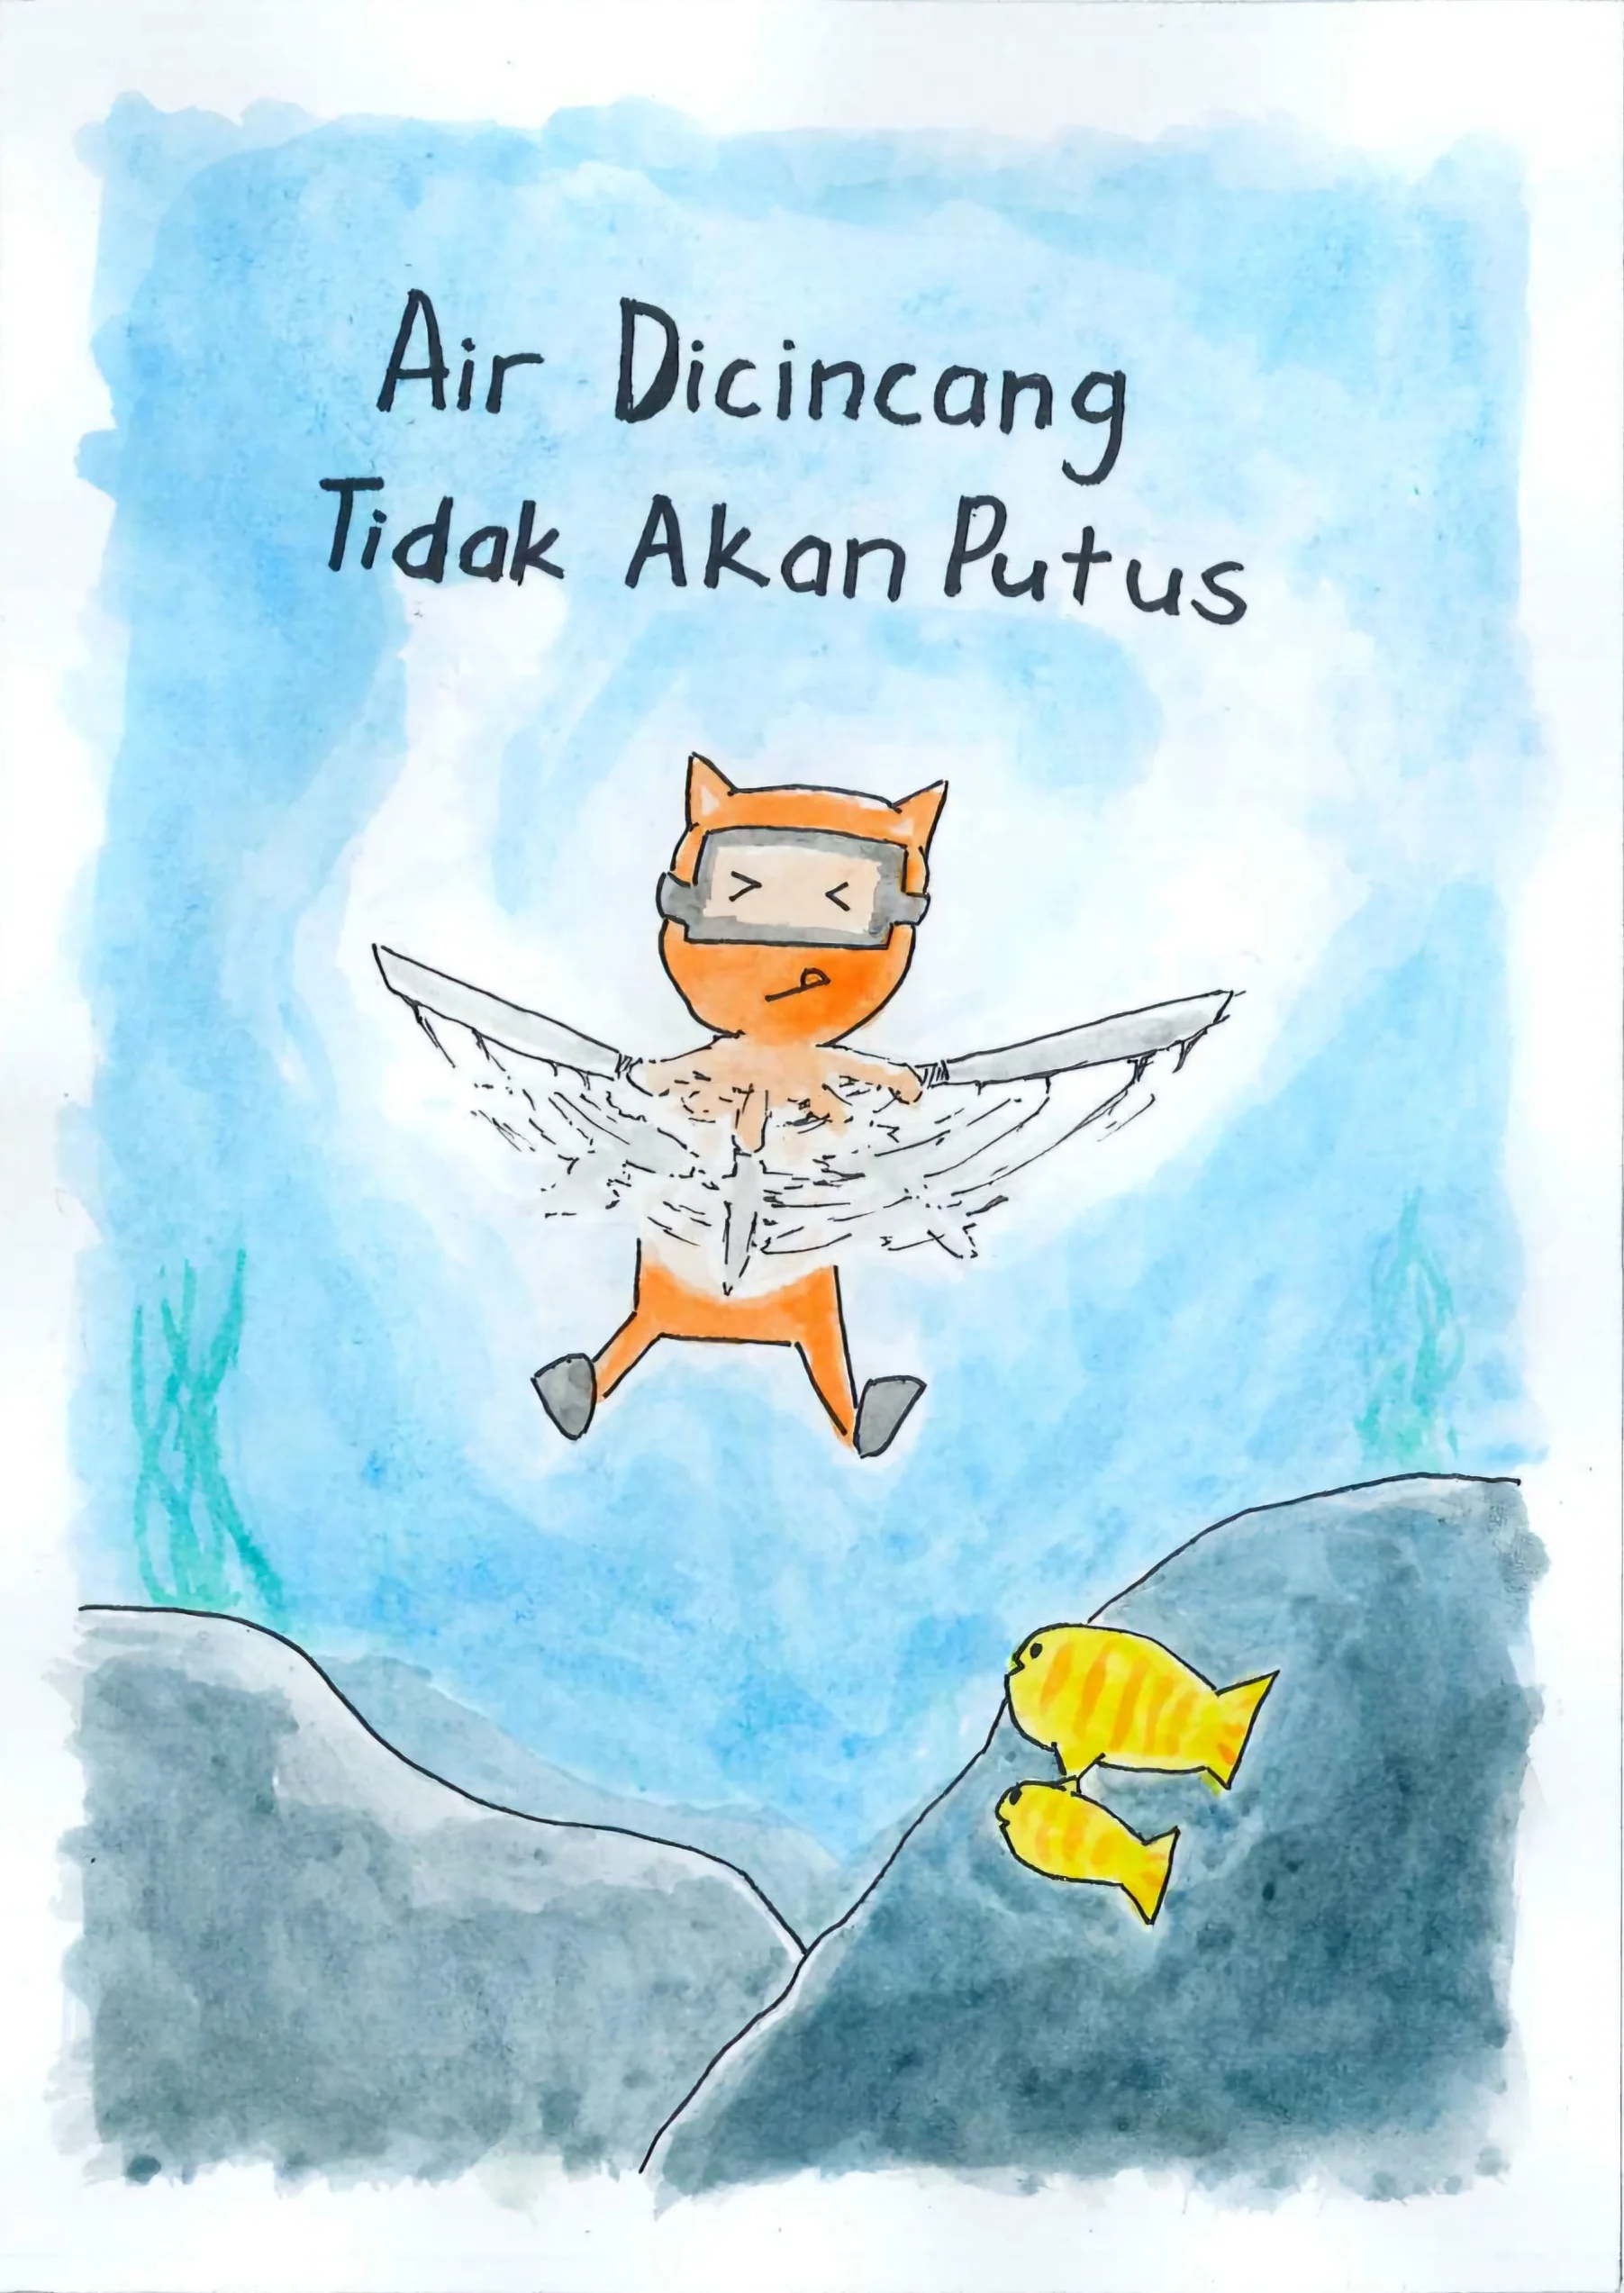 Air Dicincang
Tidak Akan Putus